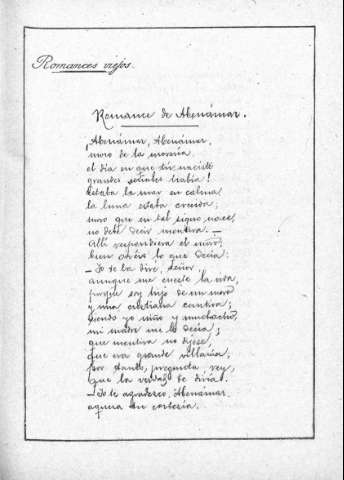 Romances viejos.
Romance de Abenámar.
¡Abenámar, Abenámar,
moro de la morería
el día en que tú naciste
grandes señales había!
Estaba la mar en calma
la luna estaba crecida;
moro que en tal signo nace,
no debe decir mentira. —
Allí respondiera el moro,
bien oiréis lo que decía:
— Yo te la diré, señor,
aunque me cueste la vida,
porque soy hijo de un moro
y una cristiana cautiva;
siendo yo niño y muchacho,
mi madre me lo decía;
que mentira no dijese,
que era grande villanía;
por tanto, pregunta, rey,
que la verdad te diría.
— Yo te agradezco, Abenámar,
aquesa tu cortesía.